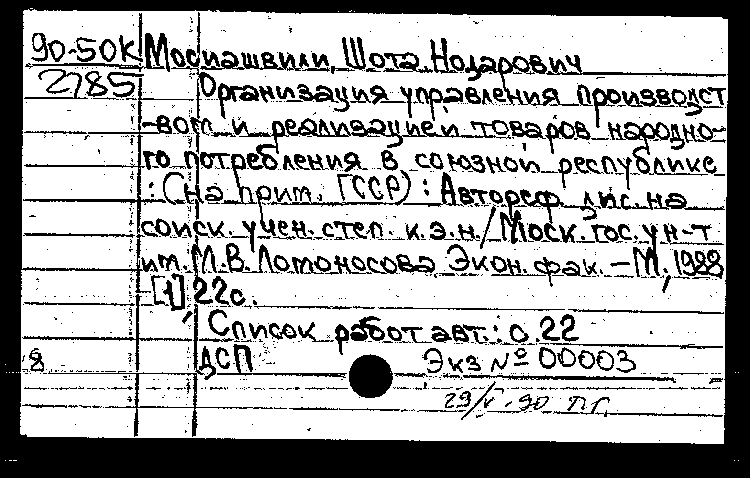 90-50К Мосиашвили, Шота Нодарович
2785 Организация управления производст
-вом и реализацией товаров народно-
го потребления в союзной республике
: (На прим. ГССР) : Автореф. дис. на
соиск. учен. степ. к.э.н. / Моск. гос. ун-т
им. М.В. Ломоносова Экон. фак. – М., 1988
[1], 22с.
Список работ авт.: с. 22
8 ДСП Экз № 00003
29/V-90 П.Г.